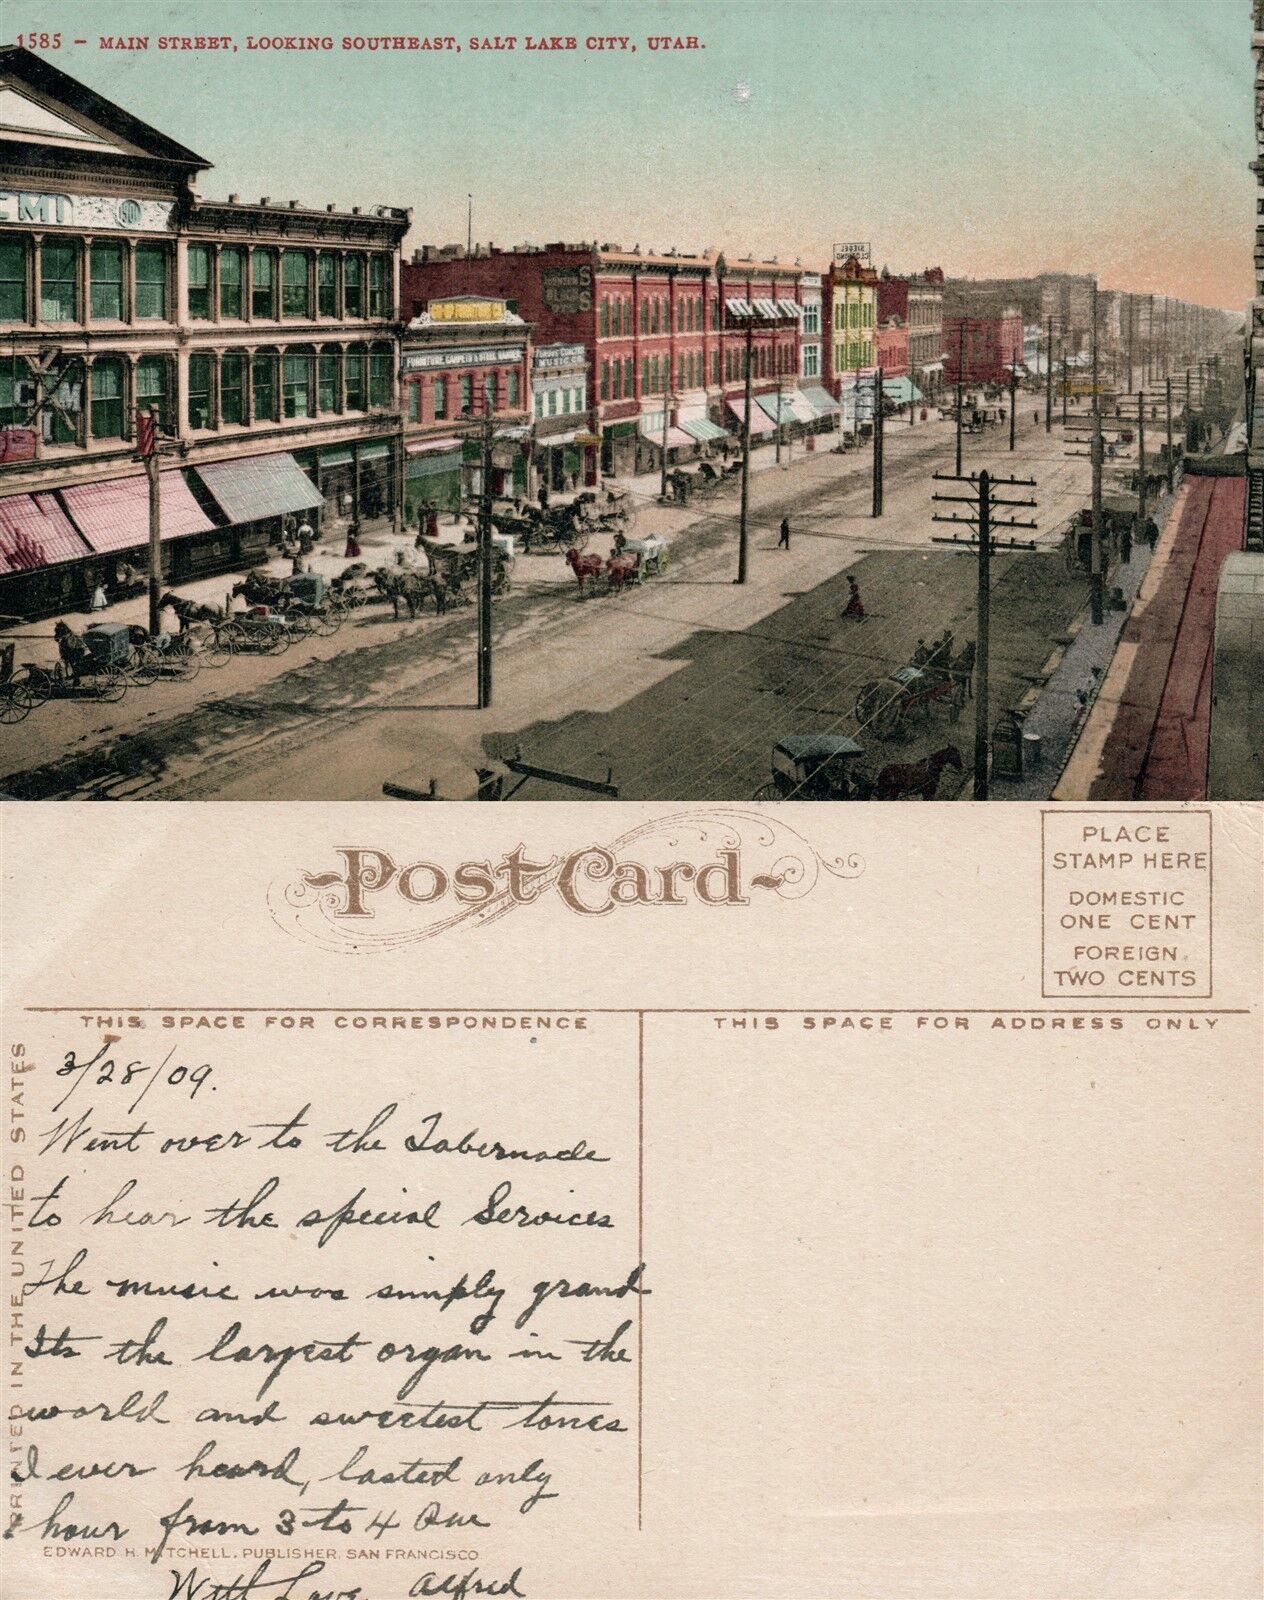 1585 – MAIN STREET, LOOKING SOUTHEAST, SALT LAKE CITY, UTAH.
CMI
FURNITURE, CARPETS & STEEL RANGES
MUSIC CO.
SIEGEL
CLOTHING
Post Card
PLACE
STAMP HERE
DOMESTIC
ONE CENT
FOREIGN
TWO CENTS
THIS SPACE FOR CORRESPONDENCE
THIS SPACE FOR ADDRESS ONLY
PRINTED IN THE UNITED STATES
3/28/09.
Went over to the Tabernacle
to hear the special Services
The music was simply grand
Its the largest organ in the
world and sweetest tones
I ever heard, lasted only
hour from 3 to 4 Pm
EDWARD H. MITCHELL, PUBLISHER, SAN FRANCISCO
With Love Alfred